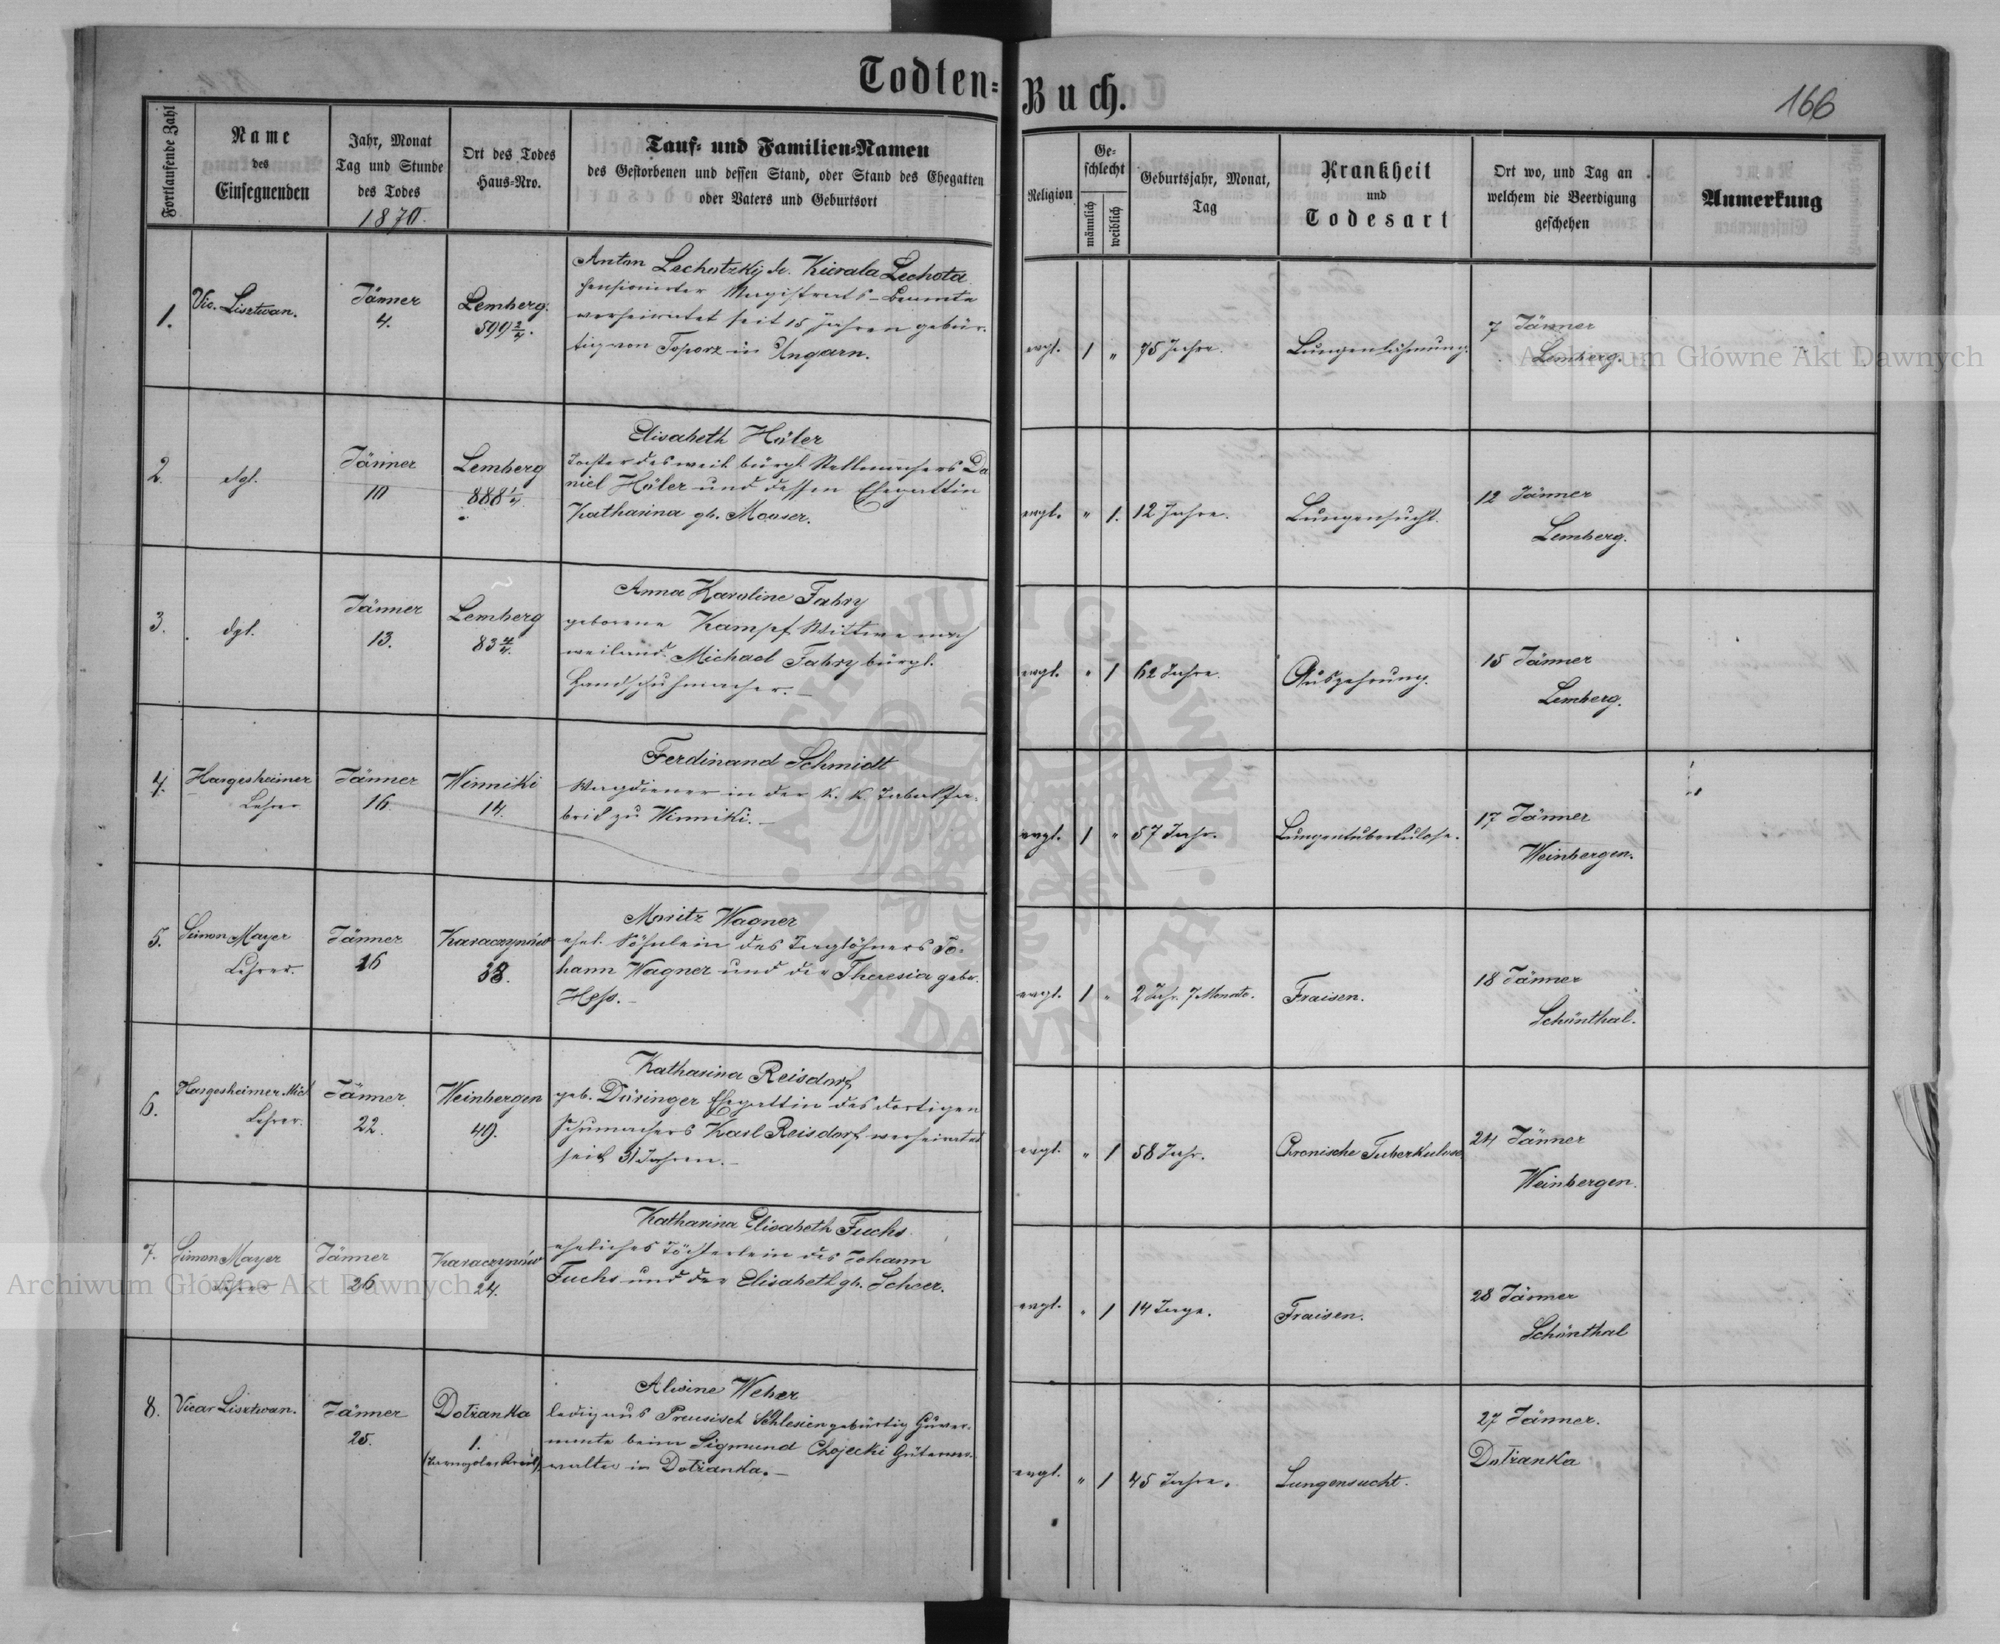 Todten-Buch.
166
Fortlaufende Zahl
Name
des
Einsegnenden
Jahr, Monat
Tag und Stunde
des Todes
1870.
Ort des Todes
Haus-Nro.
Tauf- und Familien-Namen
des Gestorbenen und dessen Stand, oder Stand des Ehegatten
oder Vaters und Geburtsort
Religion
Ge-
schlecht
männlich
weiblich
Geburtsjahr, Monat,
Tag
Krankheit
und
Todesart
Ort wo, und Tag an
welchem die Beerdigung
geschehen
Anmerkung
1.
Vic. Lisztwan.
Jänner
4.
Lemberg.
599 2/4.
Anton Lechotzky de Kierala Lechota
pensionirter Magistrats-Beamte
verheiratet seit 15 Jahren gebür-
tig von Toporz in Ungarn.
evgl.
1
"
75 Jahre.
Lungenlähmung.
7 Jänner
Lemberg.
2.
dgl.
Jänner
10
Lemberg
888 1/4
Elisabeth Höler
Tochter des weil. bürgl. Stellmachers Da
niel Höler und dessen Ehegattin
Katharina gb. Mauser.
evgl.
"
1.
12 Jahre.
Lungensucht.
12 Jänner
Lemberg.
3.
dgl.
Jänner
13.
Lemberg
83 4/4.
Anna Karoline Fahry
geborene Kampf Wittwe nach
weiland Michael Fahry bürgl.
Handschuhmacher.-
evgl.
"
1
62 Jahre.
Auszehrung.
15 Jänner
Lemberg.
4.
Hargesheimer
Lehrer
Jänner
16.
Winniki
14.
Ferdinand Schmidt
Wagdiener in der K. K. Tabakfa-
brik zu Winniki.-
evgl.
1
"
57 Jahr.
Lungentuberkulose.
17 Jänner
Weinbergen.
5.
Simon Mayer
Lehrer.
Jänner
16
Karaczynów
38.
Moritz Wagner
ehel. Söhnlein des Taglöhners Jo-
hann Wagner und der Theresia gebr.
Hess.-
evgl.
1
"
2 Jahr 7 Monate.
Fraisen.
18 Jänner
Schönthal.
6.
Hargesheimer Mich
Lehrer.
Jänner
22.
Weinbergen
49.
Katharina Reisdorf
geb. Düringer Ehegattin des dortigen
Schumachers Karl Reisdorf verheiratet
seit 31 Jahren.-
evgl.
"
1
58 Jahr.
Chronische Tuberkulose
24 Jänner
Weinbergen.
7.
Simon Mayer
Lehrer
Jänner
26
Karaczynów
24.
Katharina Elisabeth Fuchs.
eheliches Töchterlein des Johann
Fuchs und der Elisabeth gb. Scheer.
evgl.
"
1
14 Tage.
Fraisen.
28 Jänner
Schönthal
8.
Vicar Lisztwan.
Jänner
25.
Dolżanka
1.
(Tarnopoler Kreis)
Alwine Weber
ledig aus Preusisch Schlesien gebürtig Guver-
nante beim Sigmund Chojecki Güterver-
walter in Dolżanka.-
evgl.
"
1
45 Jahre.
Lungensucht.
27 Jänner.
Dolżanka
Archiwum Główne Akt Dawnych
Archiwum Główne Akt Dawnych
ARCHIWUM GŁÓWNE
AKT DAWNYCH